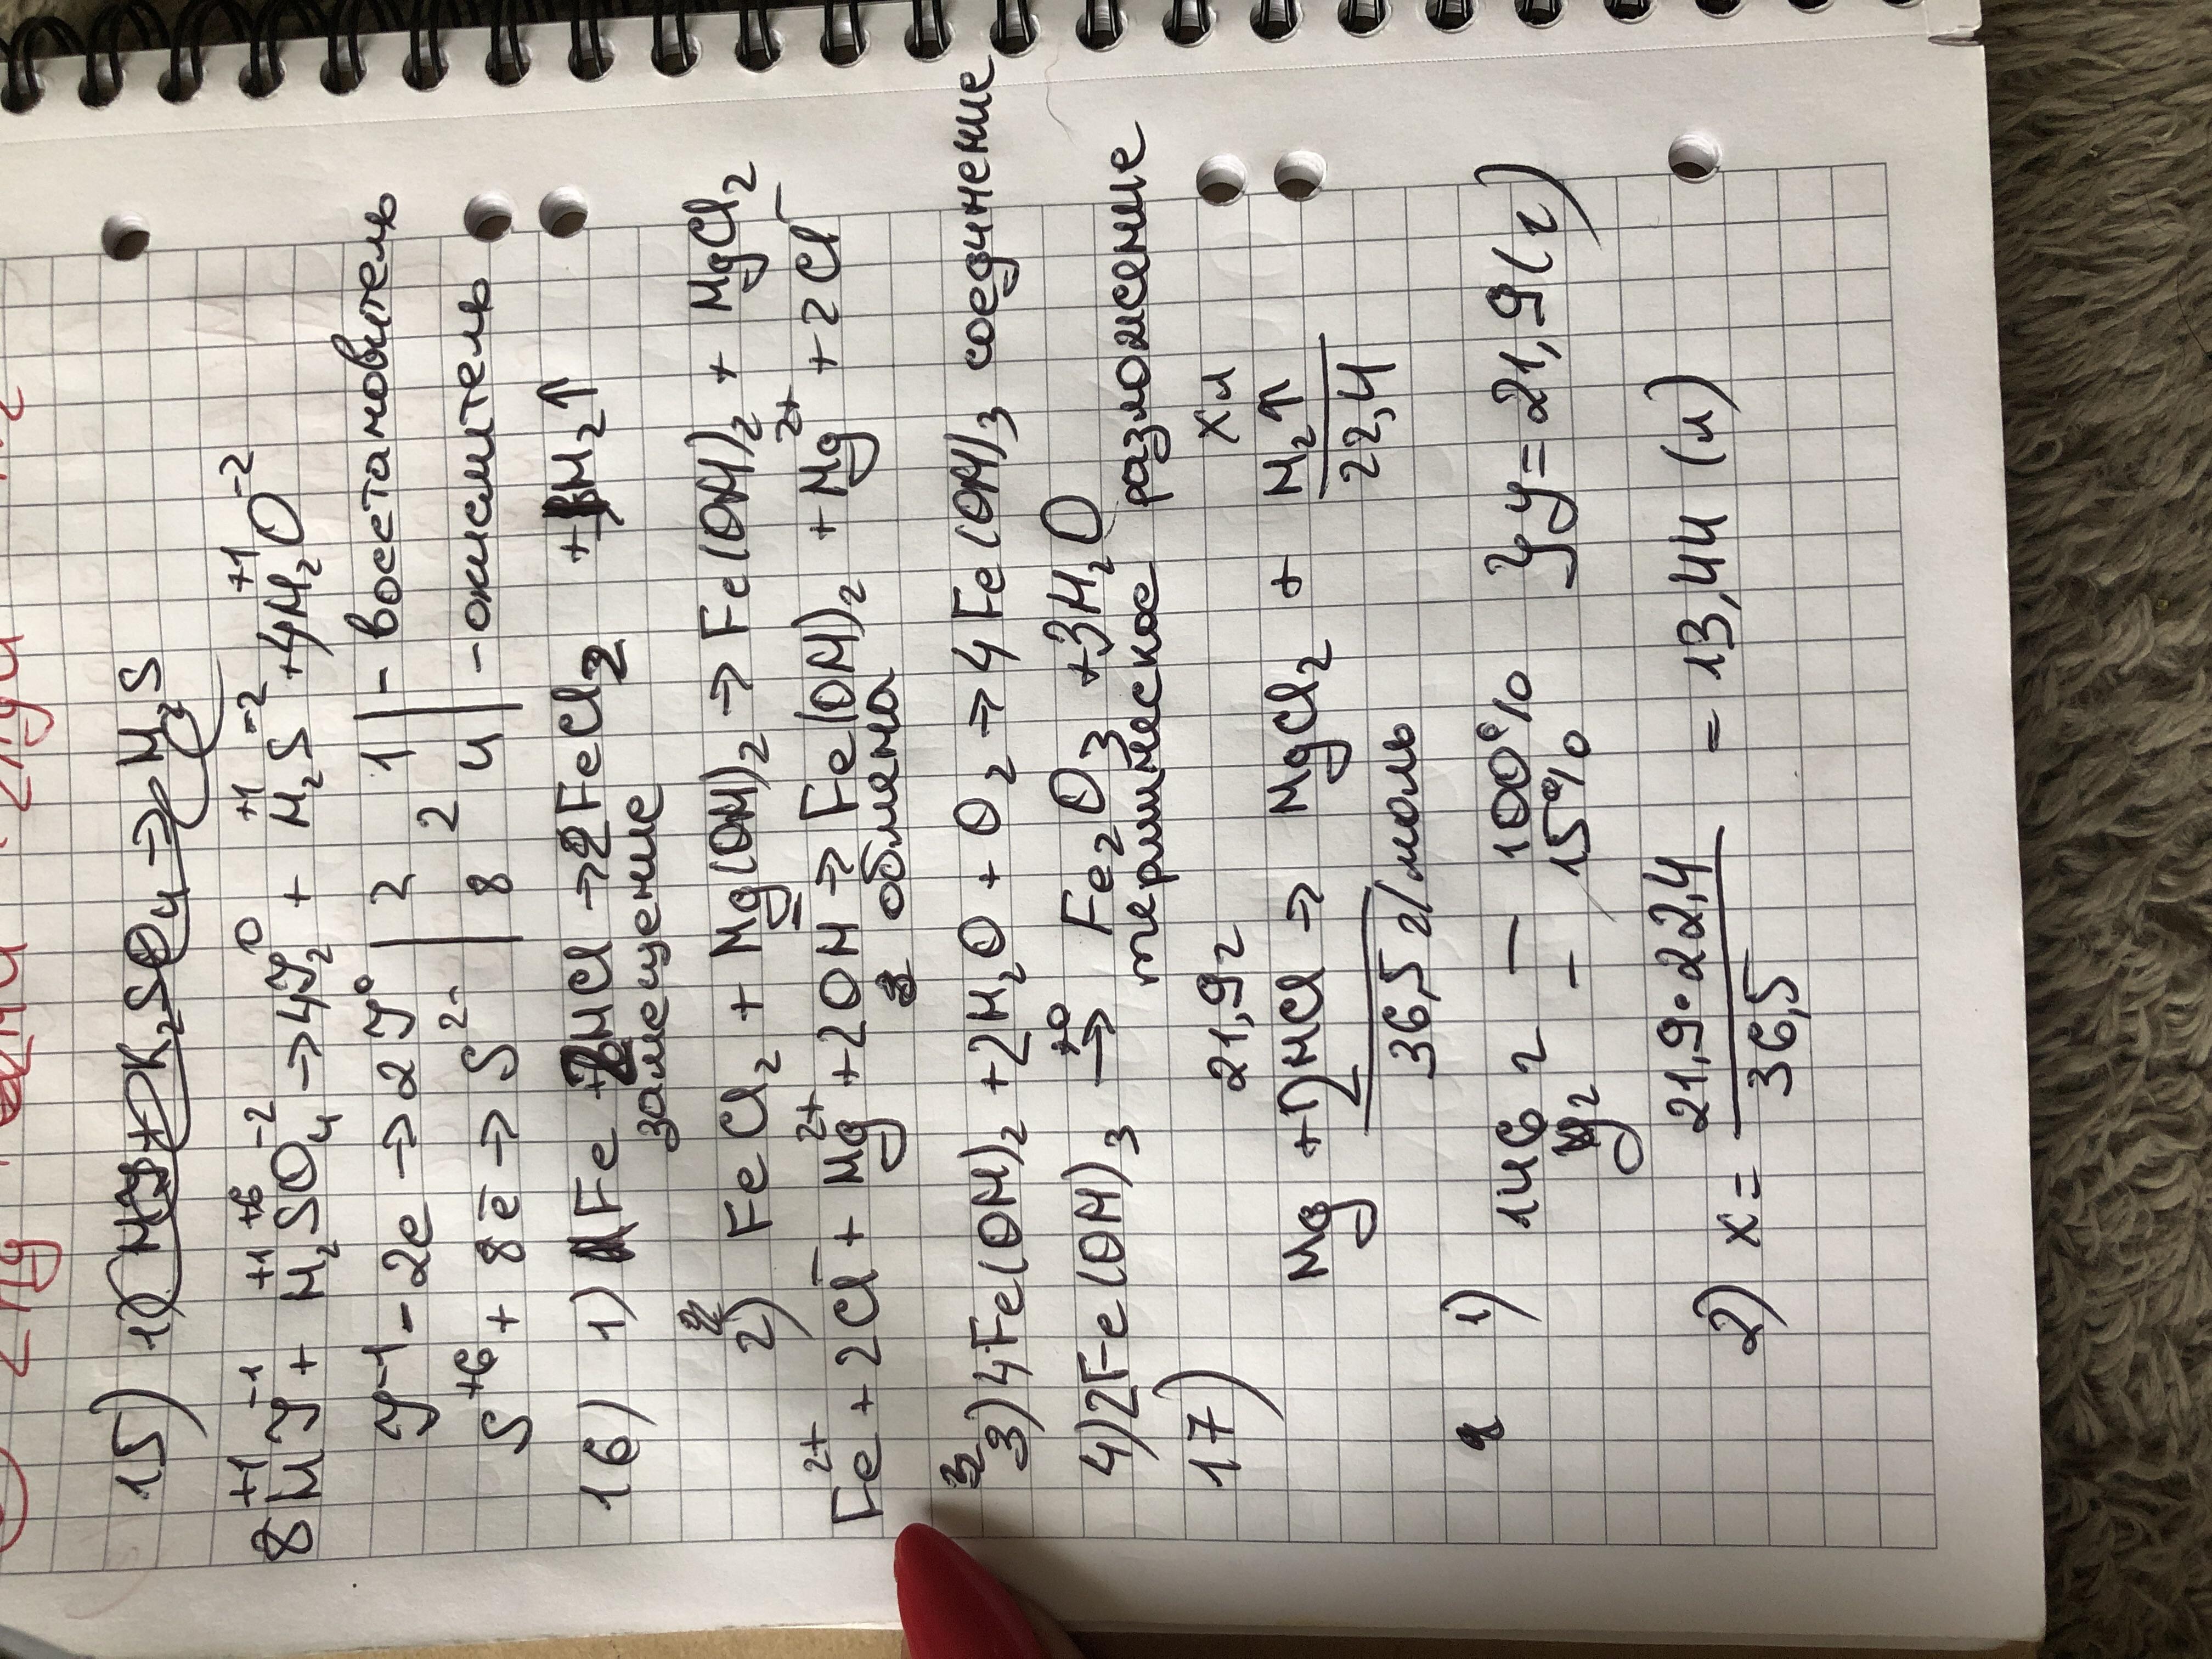 15)
8H⁺¹J⁻¹ + H₂⁺¹S⁺⁶O₄⁻² → 4J₂⁰ + H₂⁺¹S⁻² + 4H₂⁺¹O⁻²
J⁻¹ - 2e → 2J⁰ | 2 2 1 | - восстановитель
S⁺⁶ + 8ē → S²⁻ | 8 4 | - окислитель
16) 1) Fe + 2HCl → FeCl₂ + H₂↑
замещение
2) FeCl₂ + Mg(OH)₂ → Fe(OH)₂ + MgCl₂
Fe²⁺ + 2Cl⁻ + Mg²⁺ + 2OH → Fe(OH)₂ + Mg²⁺ + 2Cl⁻
обмена
3) 4Fe(OH)₂ + 2H₂O + O₂ → 4Fe(OH)₃ соединение
4) 2Fe(OH)₃ →t° Fe₂O₃ + 3H₂O
термическое разложение
17)
21,9г хл
Mg + 2HCl → MgCl₂ + H₂↑
36,5 г/моль 22,4
1) 146 г — 100%
yг - 15% } y = 21,9(г)
2) x = 21,9·22,4 / 36,5 = 13,44 (л)